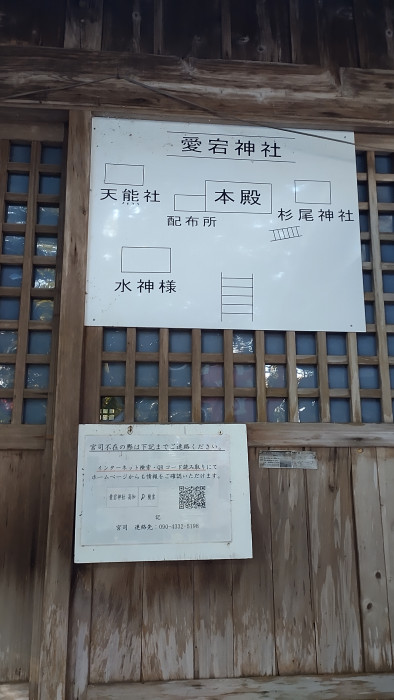 愛宕神社
天能社
配布所
本殿
杉尾神社
水神様
宮司不在の際は下記までご連絡ください。
インターネット検索・QRコード読み取りにて
ホームページからも情報をご確認いただけます。
愛宕神社 高知 検索
記
宮司 連絡先：